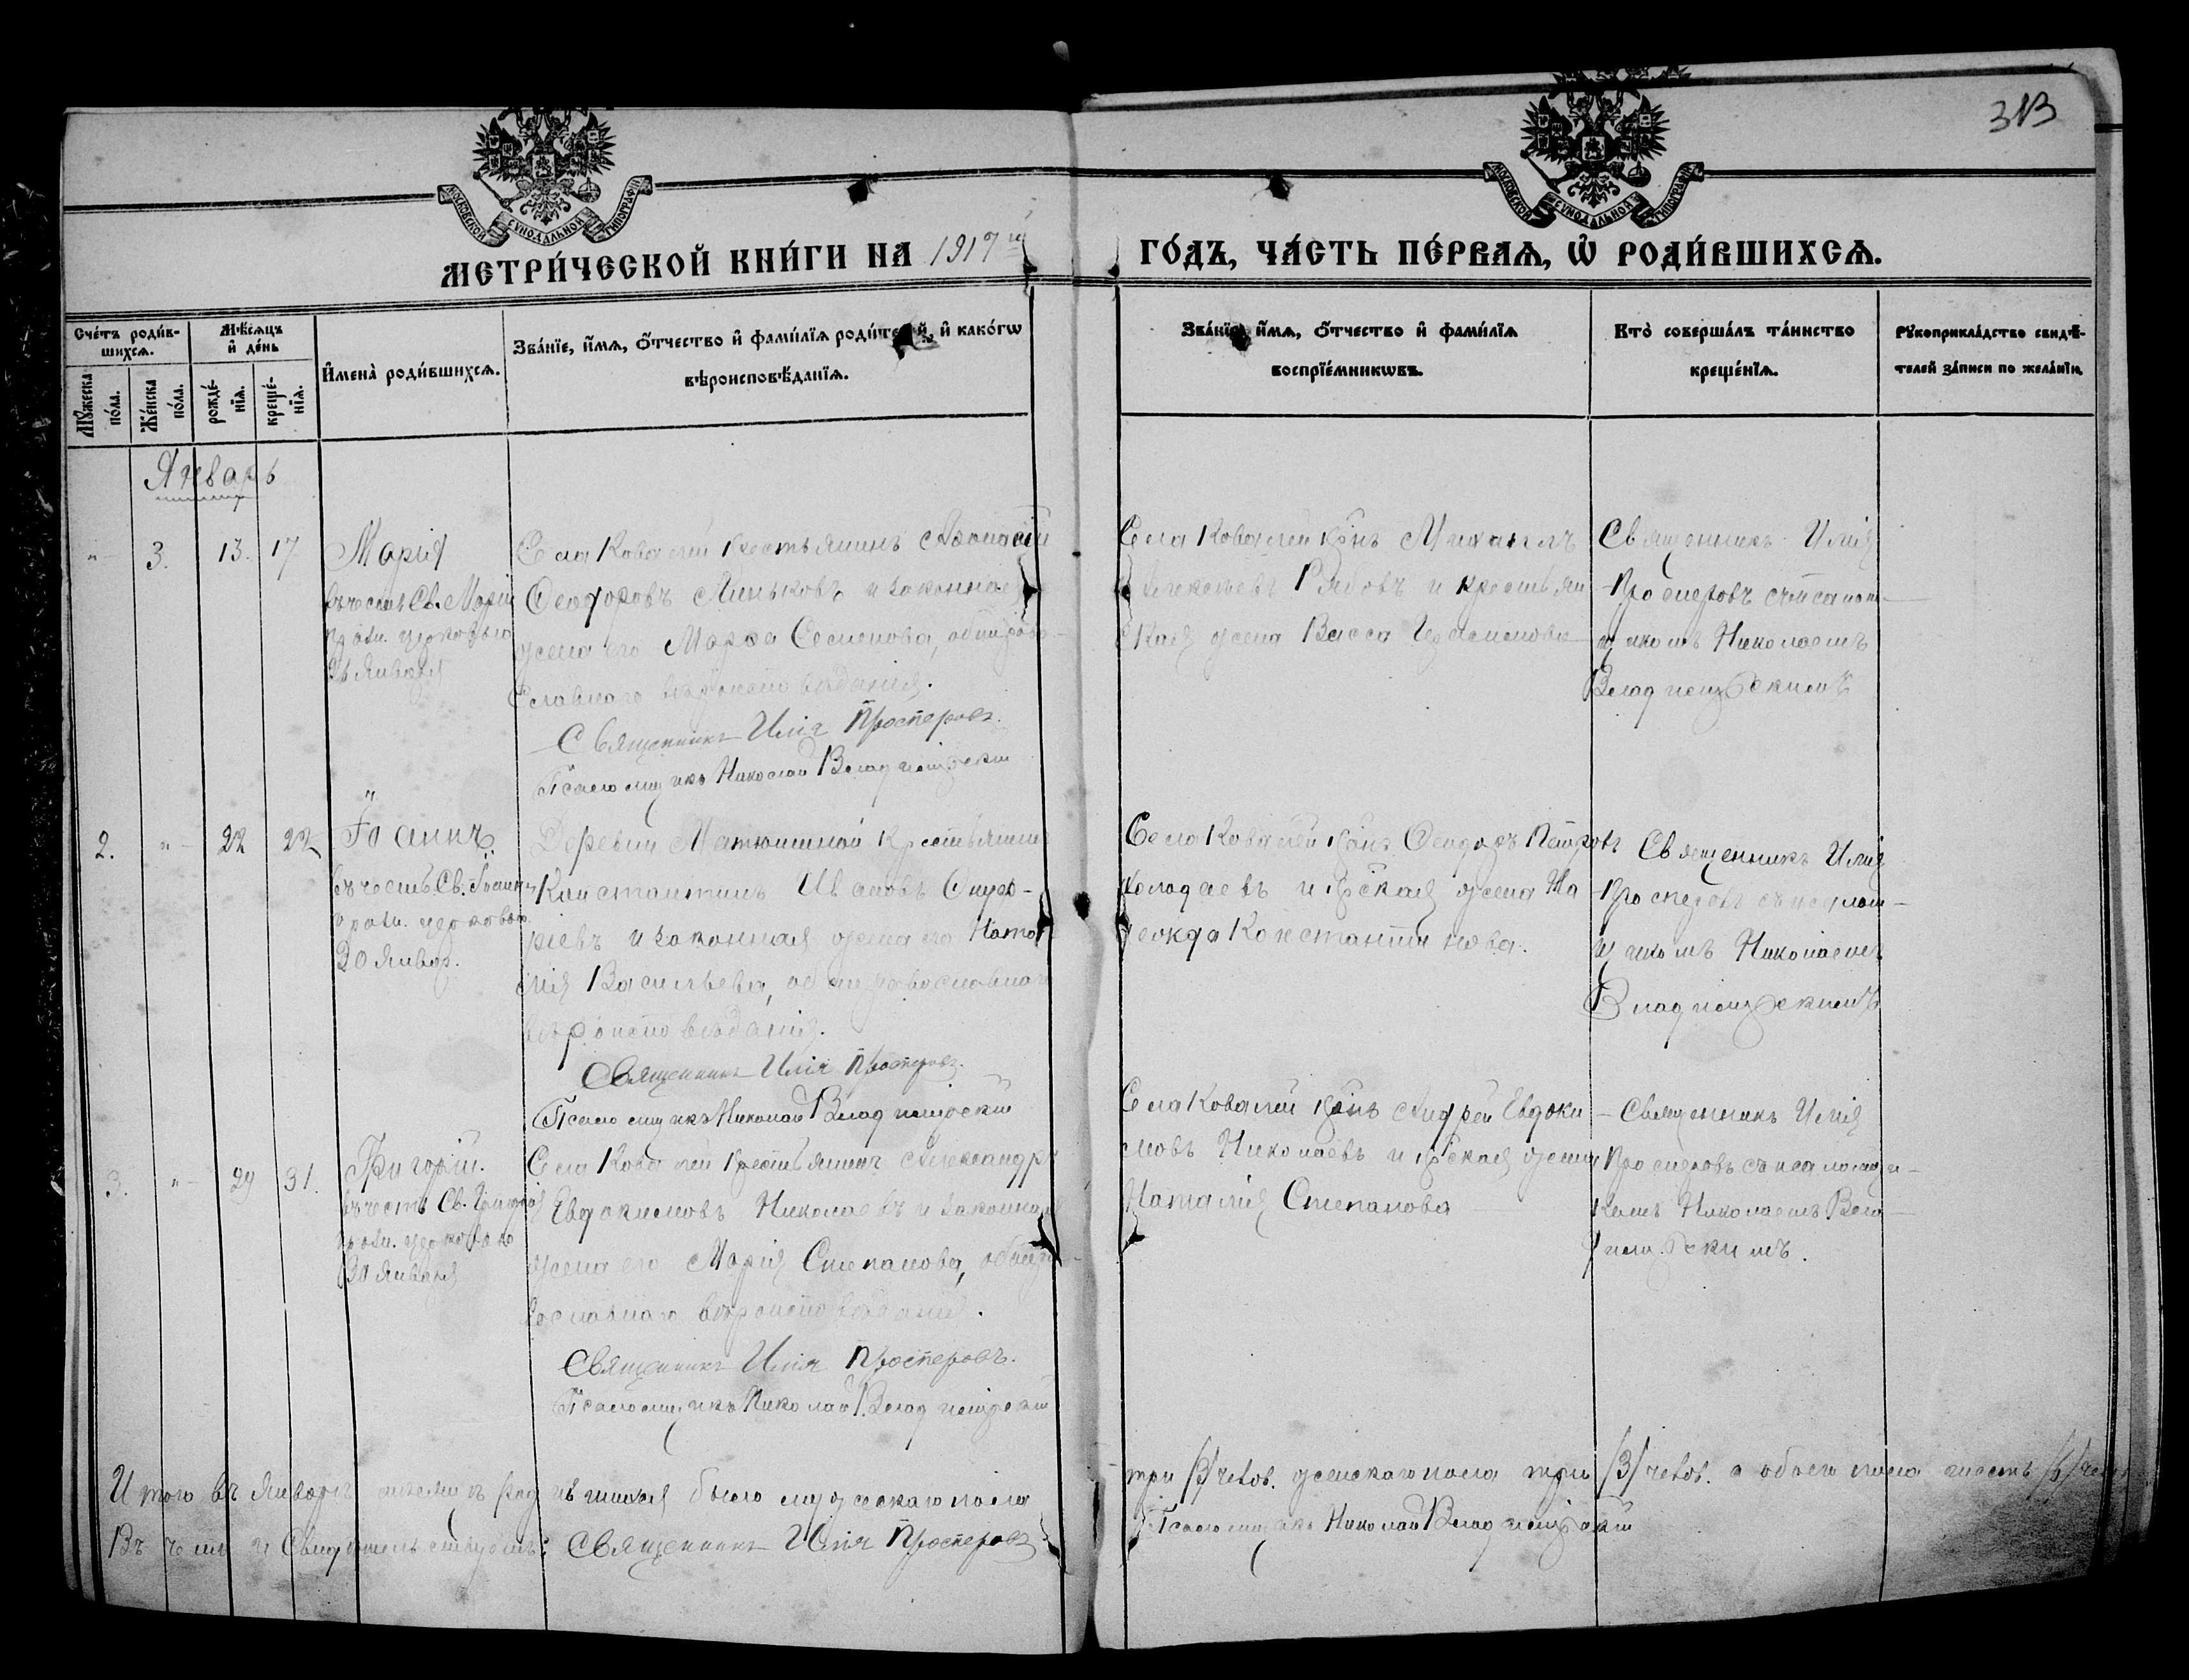 313
МОСКОВСКОЙ СУНОДАЛЬНОЙ ТИПОГРАФІИ
МОСКОВСКОЙ СУНОДАЛЬНОЙ ТИПОГРАФІИ
МЕТРИ́ЧЕСКОЙ КНИ́ГИ НА 1917й
ГО́ДЪ, ЧА́СТЬ ПЕ́РВАѦ, Ѡ҆ РОДИ́ВШИХСѦ.
Сче́тъ роди́в-
шихсѧ.
Мꙋ́жеска по́ла.
Же́нска по́ла.
Мѣ́сѧцъ и҆ де́нь
рожде́-нїѧ.
креще́-нїѧ.
И҆мена̀ роди́вшихсѧ.
Зва́нїе, и҆́мѧ, ѻ҆́тчество и҆ фами́лїѧ роди́телей, и҆ како́гѡ
вѣроисповѣ́данїѧ.
Зва́нїе, и҆́мѧ, ѻ҆́тчество и҆ фами́лїѧ
воспрїе́мникѡвъ.
Кто̀ соверша́лъ та́инство
креще́нїѧ.
Рꙋкоприкла́дство свидѣ́-
телей за́писи по жела́нїю.
Январь
" 3. 13. 17
Марія
въ честь Св. Маріи
правл. церковью
Января
Села Ковалей крестьянинъ Аѳанасій
Ѳеодоровъ Линьковъ и законная
жена его Марѳа Семенова, оба право-
славнаго вѣроисповѣданія.
Священникъ Илія Просперовъ.
Псаломщикъ Николай
Села Ковалей кр̃нъ Михаилъ
Алексѣевъ Рябовъ и крестьян
ская жена Васса Герасимова
Священникъ Илія
Просперовъ съ псалом-
щикомъ Николаемъ
2. " 22 22
Іоаннъ
въ честь Св. Іоанна
правл. церковью
30 Январ.
Деревни Матюшиной крестьянинъ
Константинъ Ивановъ
и законная жена его Ната
лія Васильева, оба православнаго
вѣроисповѣданія.
Священникъ Илія Просперовъ.
Псаломщикъ Николай
Села Ковалей кр̃нъ Ѳеодоръ Петровъ
Колодаевъ и кр̃ская жена На
дежда Константинова.
Священникъ Илія
Просперовъ съ псалом-
щикомъ Николаемъ
3. " 29 31.
Григорій.
въ честь Св. Григорія
правл. церковью
30 Января
Села Ковалей крестьянинъ Александръ
Евдокимовъ Николаевъ и законная
жена его Марія Степанова, оба пра
вославнаго вѣроисповѣданія.
Священникъ Илія Просперовъ.
Псаломщикъ Николай
Села Ковалей кр̃нъ Андрей Евдоки
мовъ Николаевъ и кр̃ская жена
Наталія Степанова
Священникъ Илія
Просперовъ съ псаломщи-
комъ Николаемъ
Итого въ Январѣ мѣсяцѣ родившихся было мужескаго пола
три /3/ челов. женскаго пола три /3/ челов. а обоего пола шесть /6/ чел.
Въ чемъ и свидѣтельствуемъ: Священникъ Илія Просперовъ
Псаломщикъ Николай